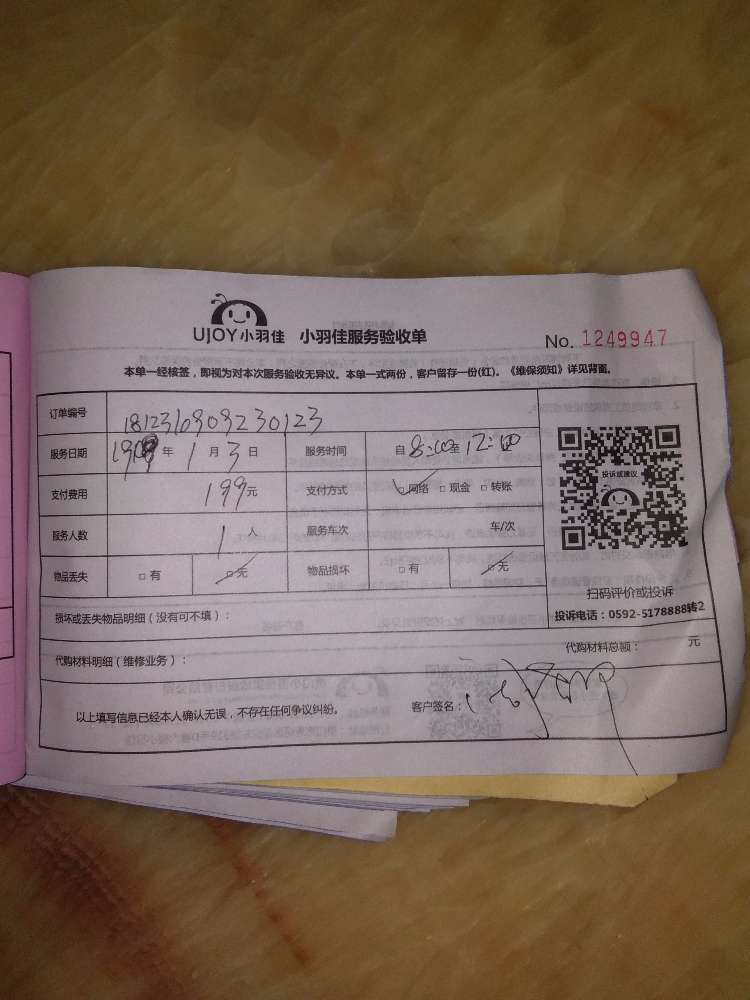 UJOY小羽佳 小羽佳服务验收单 No. 1249947
本单一经核签，即视为对本次服务验收无异议。本单一式两份，客户留存一份(红)。《维保须知》详见背面。
订单编号 1812310909230123
服务日期 年 1 月 3 日 服务时间 自 8:00 至 12:00
支付费用 199 元 支付方式 □网络 □现金 □转账
服务人数 1 人 服务车次 车/次
物品丢失 □有 □无 物品损坏 □有 □无
投诉或建议
扫码评价或投诉
投诉电话：0592-5178888转2
损坏或丢失物品明细（没有可不填）：
代购材料明细（维修业务）： 代购材料总额： 元
以上填写信息已经本人确认无误，不存在任何争议纠纷。 客户签名：